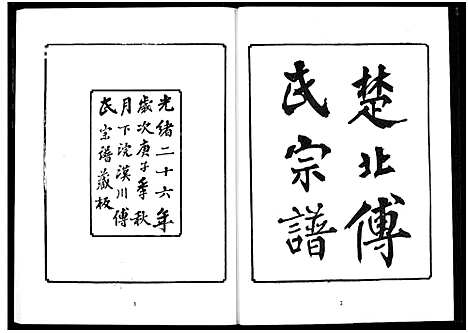 楚北傅
氏宗譜
光緒二十六年
歲次庚子季秋
月下浣漢川傅
氏宗譜藏板
2